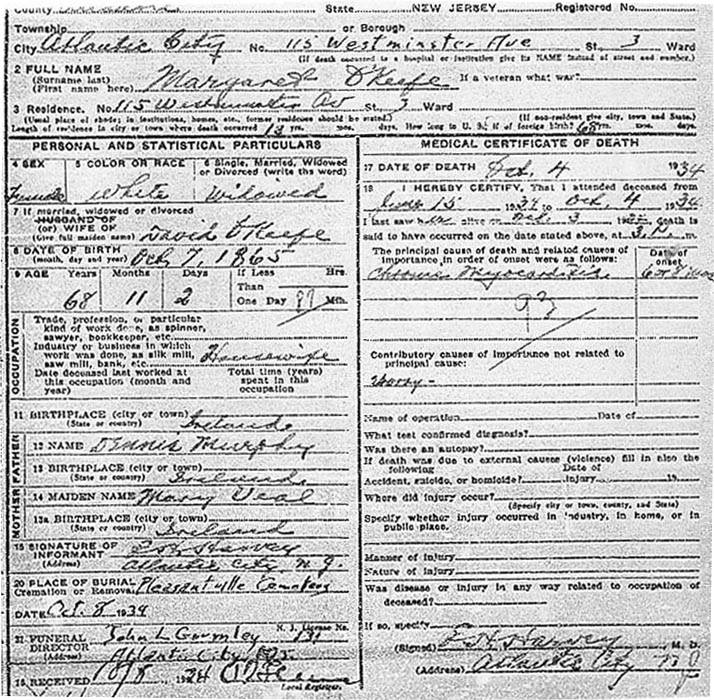 County State NEW JERSEY Registered No.
Township or Borough
City Atlantic City No. 115 Westminster Ave St. 3 Ward
(If death occurred in a hospital or institution give its NAME instead of street and number.)
2 FULL NAME Margaret O'Keefe
(Surname last)
(First name here) If a veteran what war?
3 Residence. No. 115 Westminster Av St. 3 Ward
(Usual place of abode; in institutions, homes, etc., former residence should be stated.) (If non-resident give city, town and State.)
Length of residence in city or town where death occurred 13 yrs. mos. days. How long in U. S. if of foreign birth? yrs. mos. days.
PERSONAL AND STATISTICAL PARTICULARS
4 SEX 5 COLOR OR RACE 6 Single, Married, Widowed or Divorced (write the word)
Female White Widowed
7 If married, widowed or divorced
HUSBAND OF
(or) WIFE OF David O'Keefe
(Give full maiden name)
8 DATE OF BIRTH Oct 7, 1865
(month, day and year)
9 AGE Years Months Days If Less Hrs.
Than
68 11 2 One Day Mth.
OCCUPATION
Trade, profession, or particular
kind of work done, as spinner,
sawyer, bookkeeper, etc.
Industry or business in which
work was done, as silk mill, Housewife
saw mill, bank, etc.
Date deceased last worked at Total time (years)
this occupation (month and spent in this
year) occupation
11 BIRTHPLACE (city or town)
(State or country) Ireland
FATHER
12 NAME Dennis Murphy
13 BIRTHPLACE (city or town)
(State or country) Ireland
MOTHER
14 MAIDEN NAME Mary Veal
13a BIRTHPLACE (city or town)
(State or country) Ireland
15 SIGNATURE OF
INFORMANT E H Harvey
(Address) Atlantic City N. J.
20 PLACE OF BURIAL
Cremation or Removal Pleasantville Cemetery
DATE Oct. 8 1934
21 FUNERAL John L Gormley N. J. License No. 131
DIRECTOR
(Address) Atlantic City
15 RECEIVED 10/8 1934
Local Registrar.
MEDICAL CERTIFICATE OF DEATH
17 DATE OF DEATH Oct. 4 1934
18 I HEREBY CERTIFY, That I attended deceased from
June 15 1934 to Oct. 4 1934
I last saw her alive on Oct. 3 19 death is
said to have occurred on the date stated above, at m.
The principal cause of death and related causes of
importance in order of onset were as follows: Date of onset
Chronic Myocarditis
93
Contributory causes of importance not related to
principal cause:
Worry -
Name of operation Date of
What test confirmed diagnosis?
Was there an autopsy?
If death was due to external causes (violence) fill in also the
following Date of
Accident, suicide, or homicide? injury 19
Where did injury occur?
(Specify city or town, county, and State)
Specify whether injury occurred in industry, in home, or in
public place.
Manner of injury
Nature of injury
Was disease or injury in any way related to occupation of
deceased?
If so, specify
(Signed) E H Harvey M. D.
(Address) Atlantic City N J